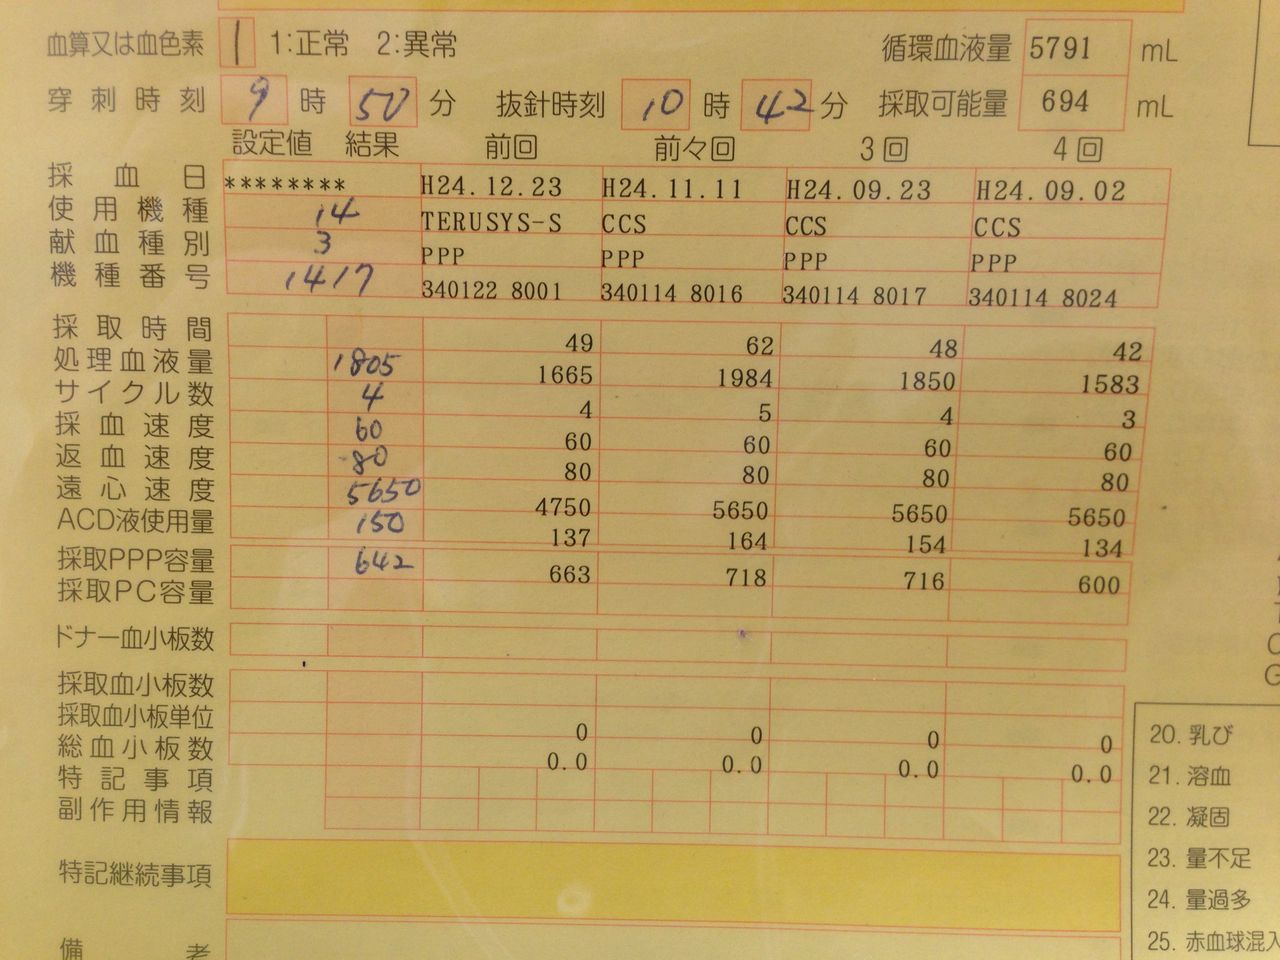 血算又は血色素 1 1:正常 2:異常 循環血液量 5791 mL
穿刺時刻 9 時 50 分 抜針時刻 10 時 42 分 採取可能量 694 mL
設定値 結果 前回 前々回 3回 4回
採血日 ******** H24.12.23 H24.11.11 H24.09.23 H24.09.02
使用機種 14 TERUSYS-S CCS CCS CCS
献血種別 3 PPP PPP PPP PPP
機種番号 1417 340122 8001 340114 8016 340114 8017 340114 8024
採取時間 49 62 48 42
処理血液量 1805 1665 1984 1850 1583
サイクル数 4 4 5 4 3
採血速度 60 60 60 60 60
返血速度 80 80 80 80 80
遠心速度 5650 4750 5650 5650 5650
ACD液使用量 150 137 164 154 134
採取PPP容量 642 663 718 716 600
採取PC容量
ドナー血小板数
採取血小板数
採取血小板単位 0 0 0 0
総血小板数 0.0 0.0 0.0 0.0
特記事項
副作用情報
特記継続事項
備考
20. 乳び
21. 溶血
22. 凝固
23. 量不足
24. 量過多
25. 赤血球混入